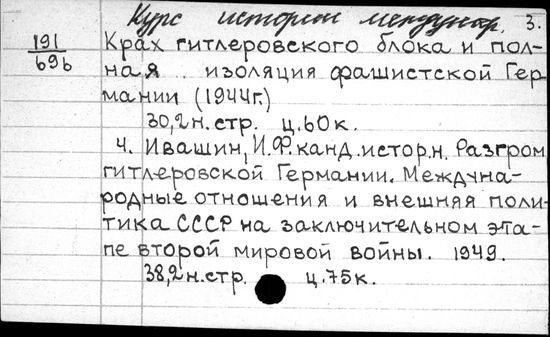 Курс истории междунар. 3.
191
69б
Крах гитлеровского блока и пол-
ная изоляция фашистской Гер
мании (1944г.)
30,2н.стр. ц.60к.
4. Ивашин, И.Ф. канд.истор.н. Разгром
гитлеровской Германии. Междуна-
родные отношения и внешняя поли-
тика СССР на заключительном эта-
пе второй мировой войны. 1949.
38,2н.стр. ц.75к.